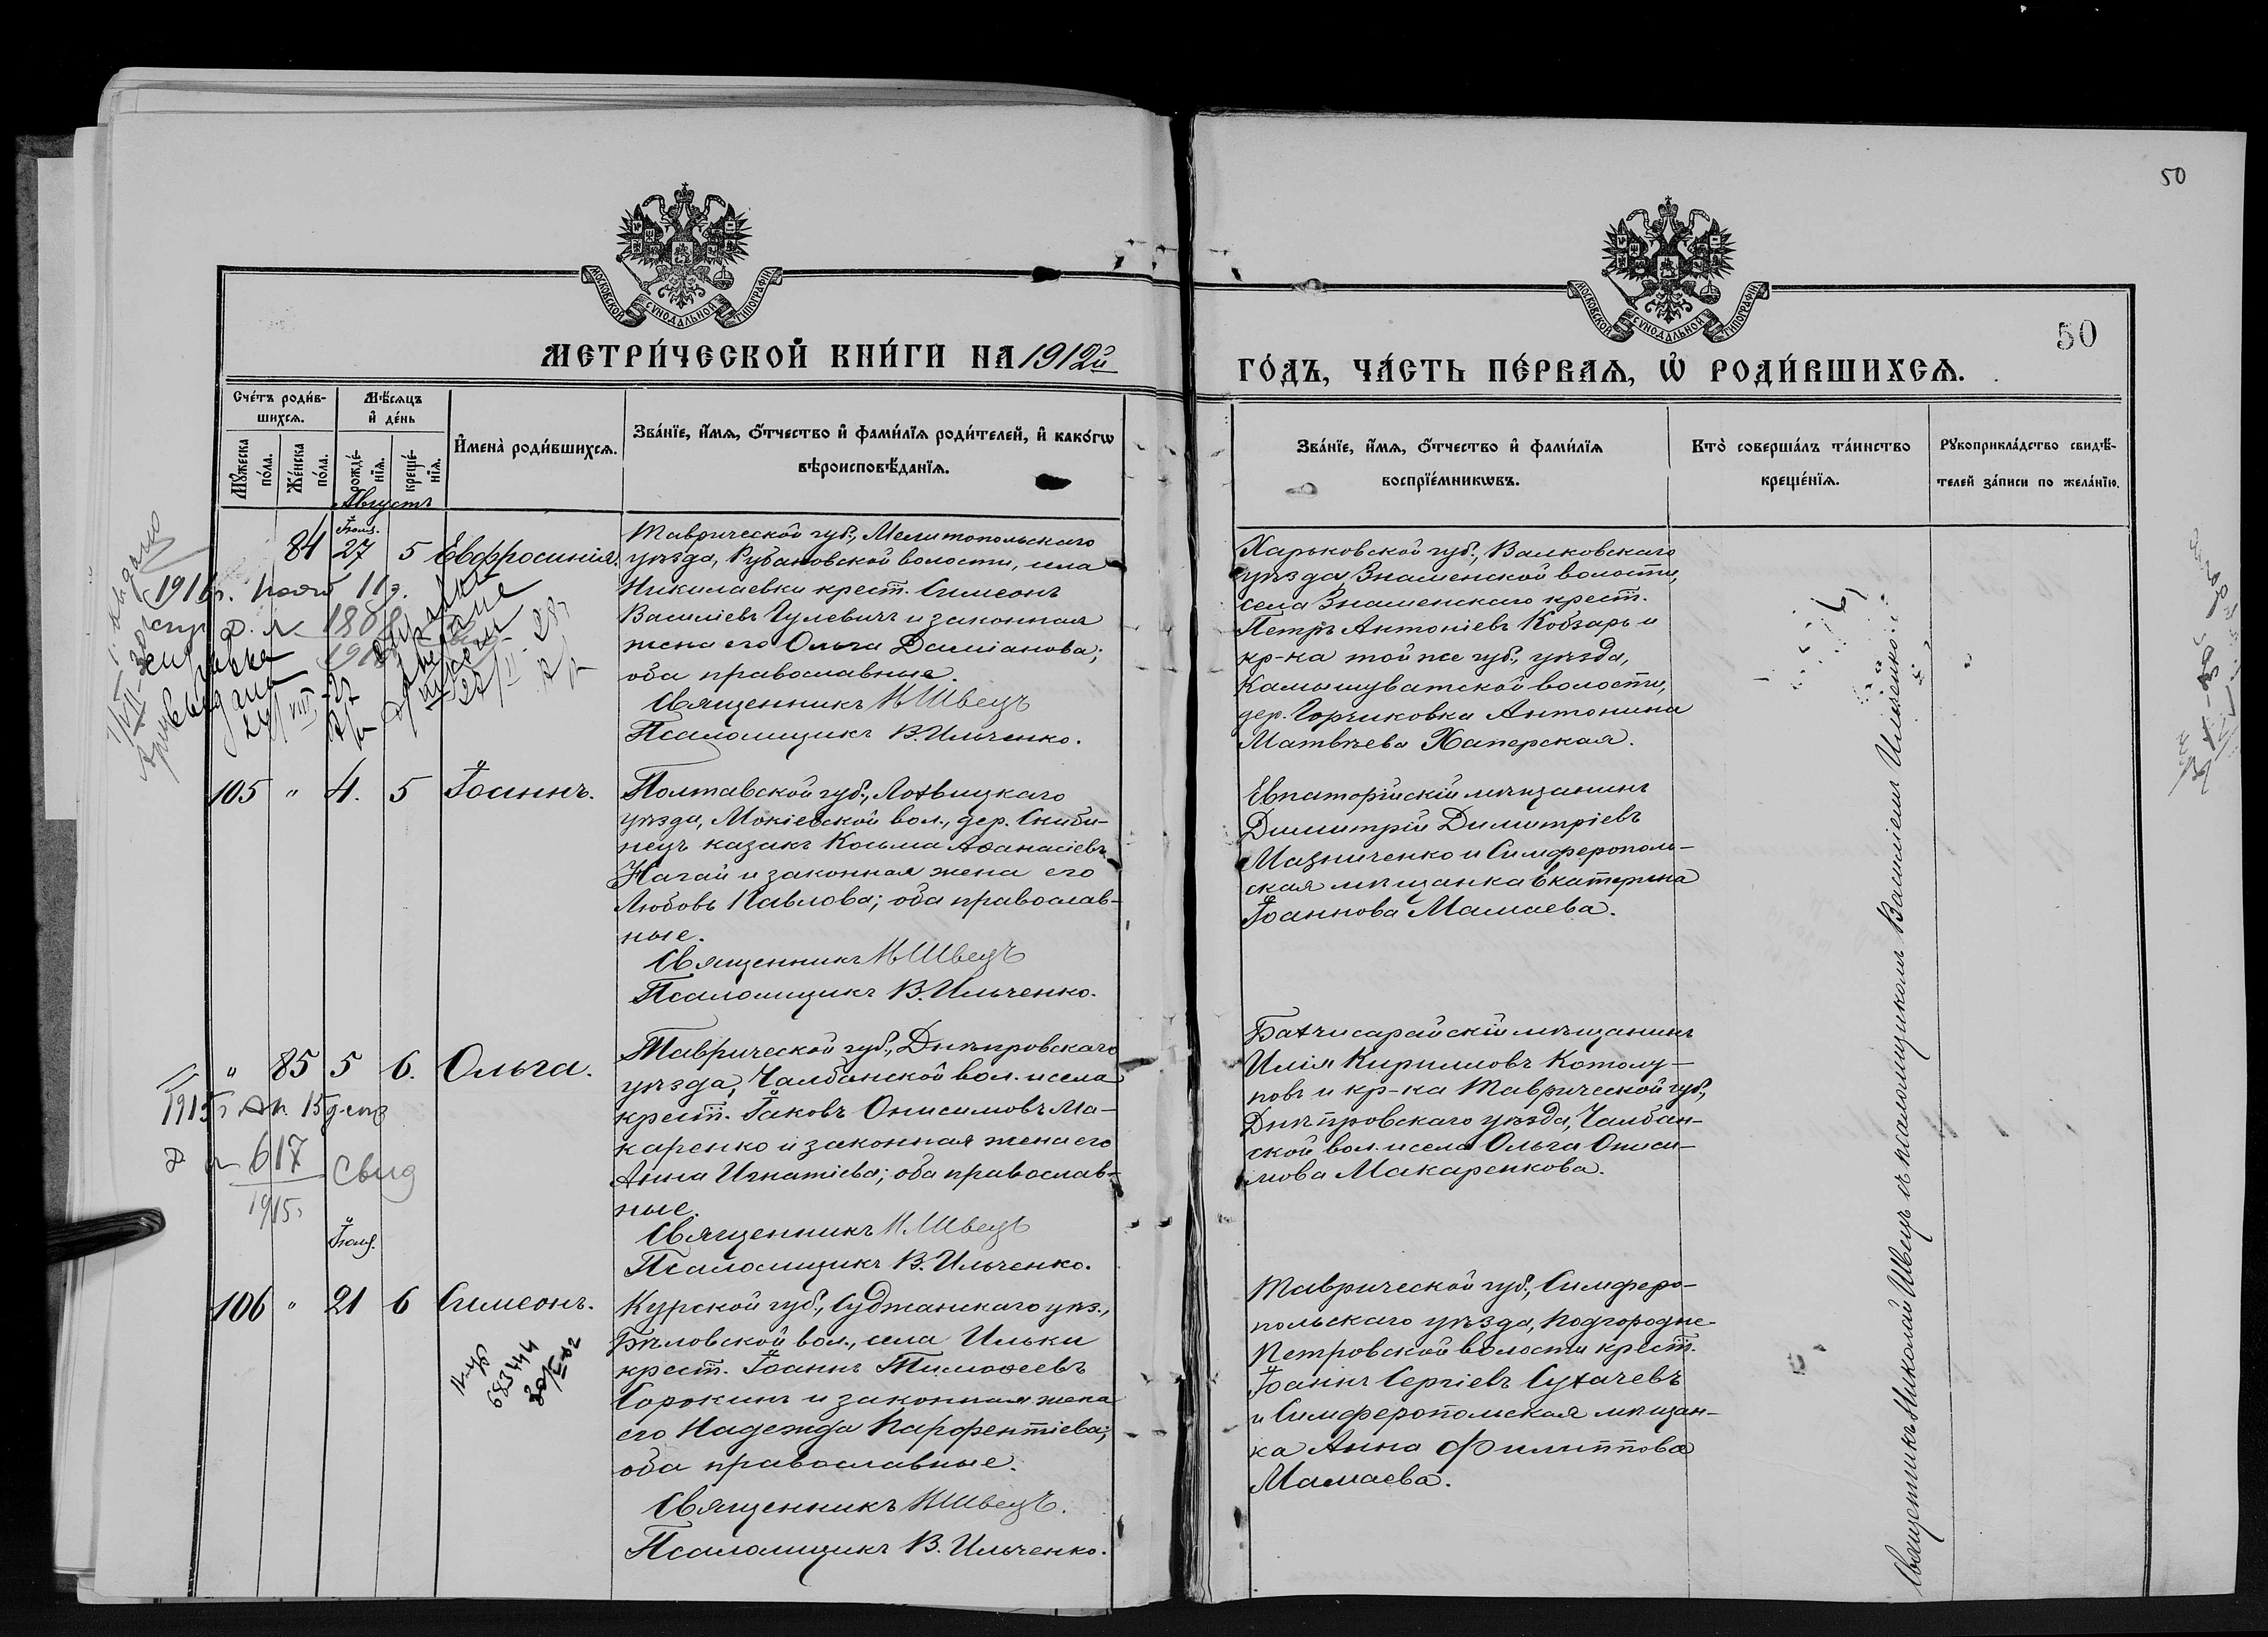 50
МОСКОВСКОЙ СѴНОДАЛЬНОЙ ТИПОГРАФІИ
МОСКОВСКОЙ СѴНОДАЛЬНОЙ ТИПОГРАФІИ
50
МЕТРИ́ЧЕСКОЙ КНИ́ГИ НА 1912й
ГО́ДЪ, ЧА́СТЬ ПЕ́РВАѦ, Ѡ҆ РОДИ́ВШИХСѦ.
Сче́тъ роди́в-
шихсѧ.
Мѣ́сѧцъ
и҆ де́нь
Мꙋ́жеска
по́ла.
Же́нска
по́ла.
рожде́-
нїѧ.
креще́-
нїѧ.
И҆мена̀ роди́вшихсѧ.
Зва́нїе, и҆́мѧ, о҆́тчество и҆ фами́лїѧ роди́телей, и҆ како́гѡ
вѣроисповѣ́данїѧ.
Зва́нїе, и҆́мѧ, о҆́тчество и҆ фами́лїѧ
воспрїе́мникѡвъ.
Кто̀ соверша́лъ та́инство
креще́нїѧ.
Рꙋкоприкла́дство свидѣ́-
телей за́писи по жела́нїю.
Августъ
84 Іюля 27 5 Евфросинія.
Таврической губ., Мелитопольскаго
уѣзда, Рубановской волости, села
Николаевки крест. Симеонъ
Василіевъ Гулевичъ и законная
жена его Ольга Даміанова;
оба православные.
Священникъ Н Швецъ
Псаломщикъ В. Ильченко.
Харьковской губ., Валковскаго
уѣзда, Знаменской волости,
села Знаменскаго крест.
Петръ Антоніевъ Кобзарь и
кр-ка той же губ., уѣзда,
Камышуватской волости,
дер. Горчиковка Антонина
Матвѣева Хаперская.
выдано
справка
выдана
105 " 4. 5 Іоаннъ.
Полтавской губ., Лохвицкаго
уѣзда, Мокіевской вол., дер. Скиби-
нецъ казакъ Косьма Аѳанасіевъ
Нагай и законная жена его
Любовь Павлова; оба православ-
ные.
Священникъ Н Швецъ
Псаломщикъ В. Ильченко.
Евпаторійскій мѣщанинъ
Димитрій Димитріевъ
Мазниченко и Симферополь-
ская мѣщанка Екатерина
Іоаннова Мамаева.
" 85 5 6. Ольга.
Таврической губ., Днѣпровскаго
уѣзда, Чалбанской вол. и села
крест. Іаковъ Онисимовъ Ма-
каренко и законная жена его
Анна Игнатіева; оба православ-
ные.
Священникъ Н. Швецъ
Псаломщикъ В. Ильченко.
Бахчисарайскій мѣщанинъ
Илія Кирилловъ Котолу-
повъ и кр-ка Таврической губ.,
Днѣпровскаго уѣзда, Чалбан-
ской вол. и села Ольга Ониси-
мова Макаренкова.
617
1915
Свид
Іюля
106 " 21 6 Симеонъ.
Курской губ., Суджанскаго уѣз.,
Бѣловской вол., села Ильки
крест. Іоаннъ Тимоѳеевъ
Сорокинъ и законная жена
его Надежда Парфентіева;
оба православные.
Священникъ Н Швецъ.
Псаломщикъ В. Ильченко.
683444
Таврической губ., Симферо-
польскаго уѣзда, Подгородне-
Петровской волости крест.
Іоаннъ Сергіевъ Сухачевъ
и Симферопольская мѣщан-
ка Анна Филиппова
Мамаева.
Священникъ Николай Швецъ съ псаломщикомъ Василіемъ Ильченко.